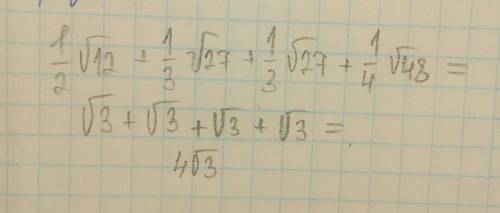 1/2 √12 + 1/3 √27 + 1/3 √27 + 1/4 √48 =
√3 + √3 + √3 + √3 =
4√3